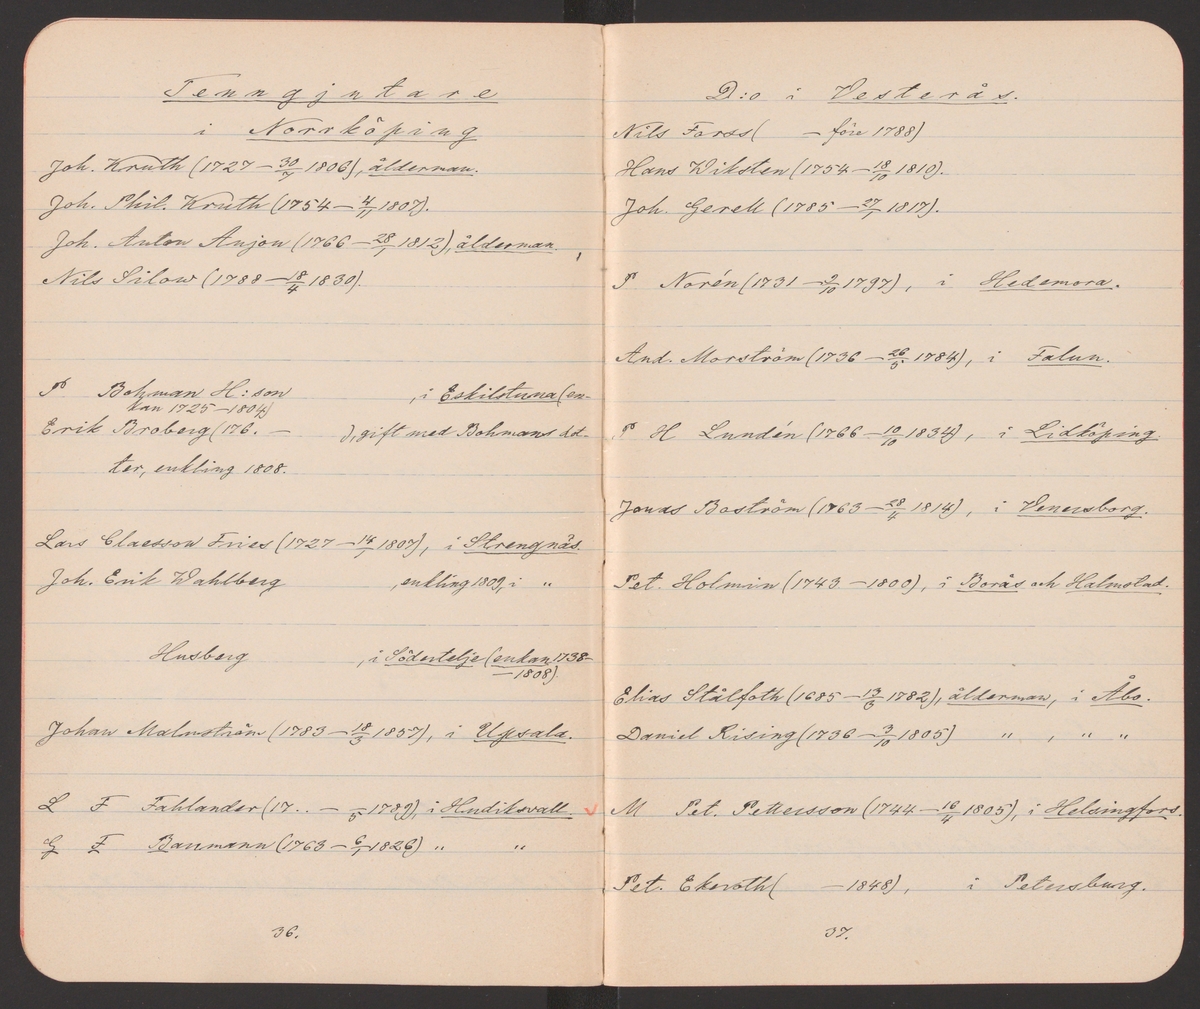 Tenngjutare
i Norrköping
Joh. Kruth (1727 — 30/7 1806), ålderman.
Joh. Phil. Kruth (1754 — 4/11 1807).
Joh. Anton Anjou (1766 — 28/1 1812), ålderman.
Nils Silow (1788 — 18/4 1830).
P Bohman H:son , i Eskilstuna (en-
kan 1725 — 1804)
Erik Broberg (176. — ), gift med Bohmans dot-
ter, enkling 1808.
Lars Claesson Fries (1727 — 14/1 1807), i Strengnäs.
Joh. Erik Wahlberg , enkling 1809, i "
Husberg , i Södertelje (enkan 1738—
—1808)
Johan Malmström (1783 — 18/3 1857), i Upsala.
L F Fahlander (17.. — /5 1789), i Hudiksvall.
G F Baumann (1763 — 6/1 1826) " "
36.
D:o i Vesterås.
Nils Forss ( — före 1788)
Hans Wiksten (1754 — 18/10 1810).
Joh. Gerell (1785 — 27/1 1817).
P Norén (1731 — 2/10 1797), i Hedemora.
And. Morström (1736 — 26/5 1784), i Falun.
P H Lundén (1766 — 10/10 1834), i Lidköping.
Jonas Boström (1763 — 28/4 1814), i Venersborg.
Pet. Holmin (1743 — 1800), i Borås och Halmstad.
Elias Stålfoth (1685 — 13/5 1782), ålderman, i Åbo.
Daniel Rising (1736 — 3/10 1805) " , " "
M Pet. Pettersson (1744 — 16/4 1805), i Helsingfors.
Pet. Ekeroth ( — 1848), i Petersburg.
37.